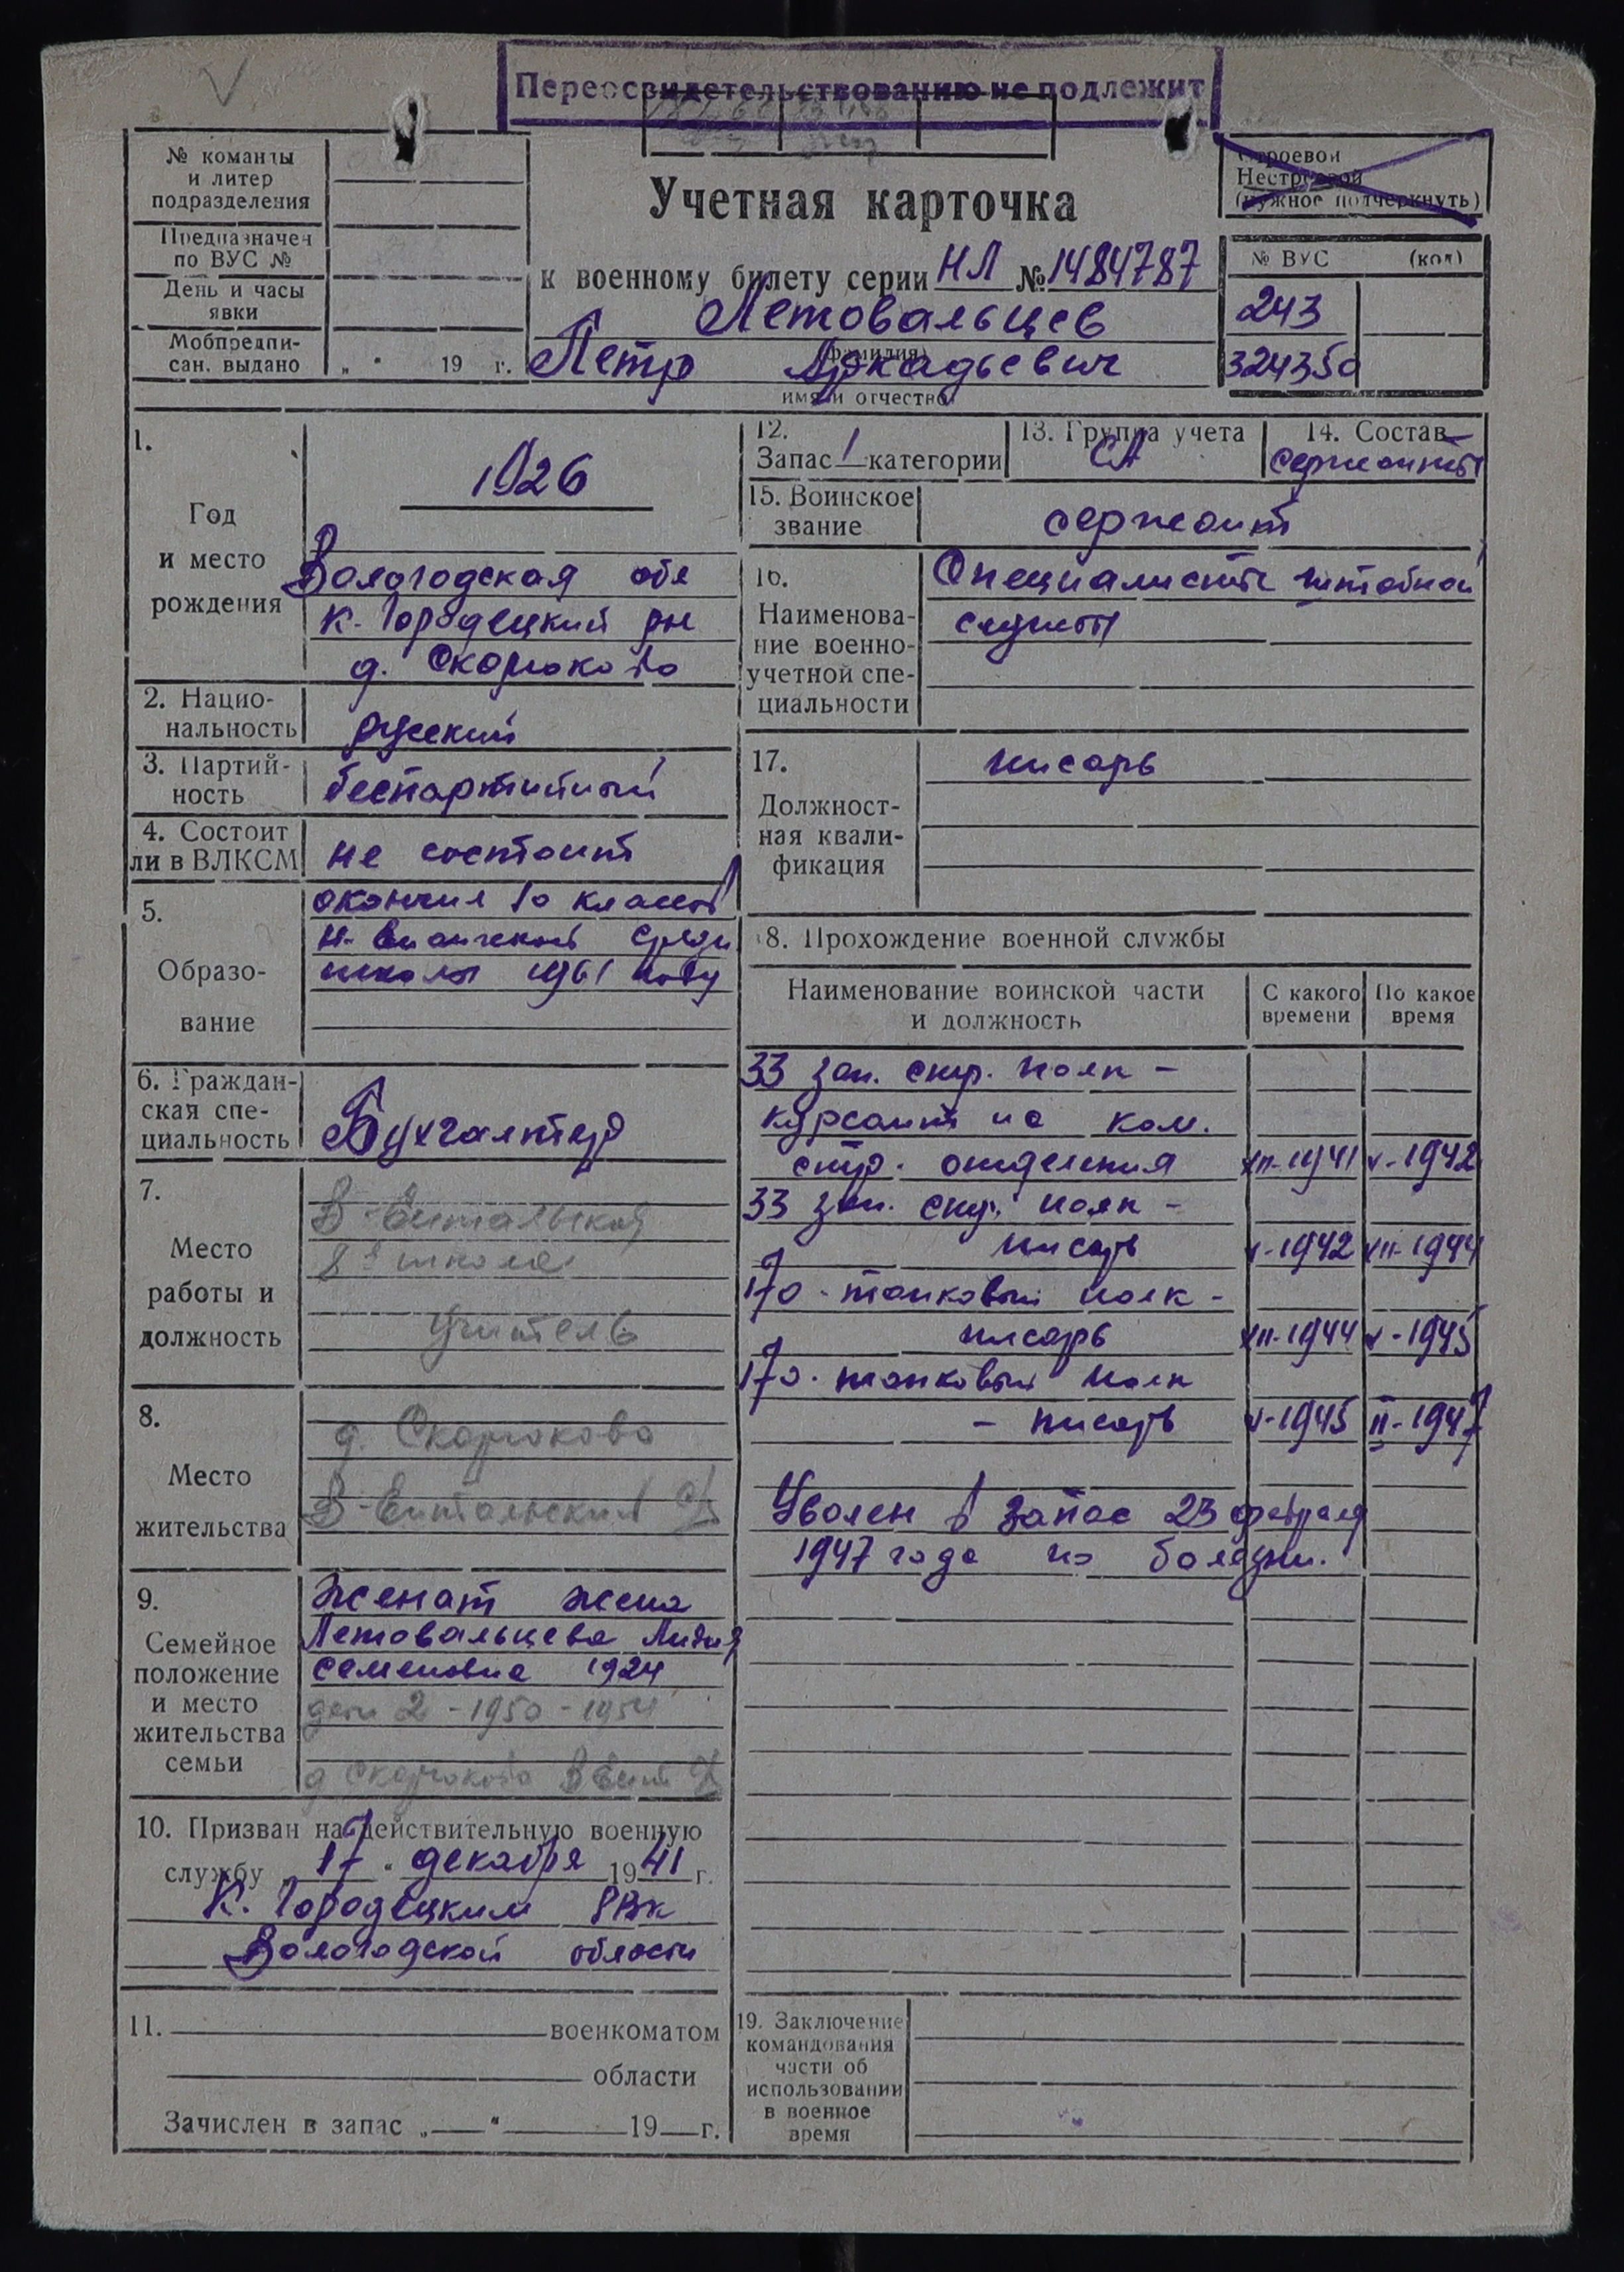 Переосвидетельствованию не подлежит
№ команды
и литер
подразделения
Предназначен
по ВУС №
День и часы
явки
Мобпредпи-
сан. выдано „ “ 19 г.
Учетная карточка
к военному билету серии НЛ № 1484787
Летовальцев
(фамилия)
Петр Аркадьевич
имя и отчество
Строевой
Нестроевой
(нужное подчеркнуть)
№ ВУС (код)
243
324350
1.
Год
и место
рождения
1926
Вологодская обл
К-Городецкий рн
д. Скорюково
2. Нацио-
нальность
русский
3. Партий-
ность
беспартийный
4. Состоит
ли в ВЛКСМ
не состоит
5.
Образо-
вание
окончил 10 классов
средн
школы 1961 году
6. Граждан-
ская спе-
циальность
Бухгалтер
7.
Место
работы и
должность
В-Ентальская
8я школа
учитель
8.
Место
жительства
д. Скорюково
В-Ентальский с/с
9.
Семейное
положение
и место
жительства
семьи
Женат жена
Летовальцева Лидия
Семеновна 1924
дети 2 - 1950 - 1954
д Скорюково В Ент с/с
10. Призван на действительную военную
службу „17“ декабря 1941 г.
К. Городецким РВК
Вологодской области
11. военкоматом
области
Зачислен в запас „ “ 19 г.
12.
Запас 1 категории
13. Группа учета
СА
14. Состав
сержанты
15. Воинское
звание
сержант
16.
Наименова-
ние военно-
учетной спе-
циальности
Специалисты штабной
службы
17.
Должност-
ная квали-
фикация
писарь
18. Прохождение военной службы
Наименование воинской части
и должность
С какого
времени
По какое
время
33 зап. стр. полк -
курсант на ком.
стр. отделения XII-1941 V-1942
33 зап. стр. полк -
писарь V-1942 XII-1944
170. танковый полк -
писарь XII-1944 V-1945
170. танковый полк
- писарь V-1945 II-1947
Уволен в запас 23 февраля
1947 года по болезни.
19. Заключение
командования
части об
использовании
в военное
время